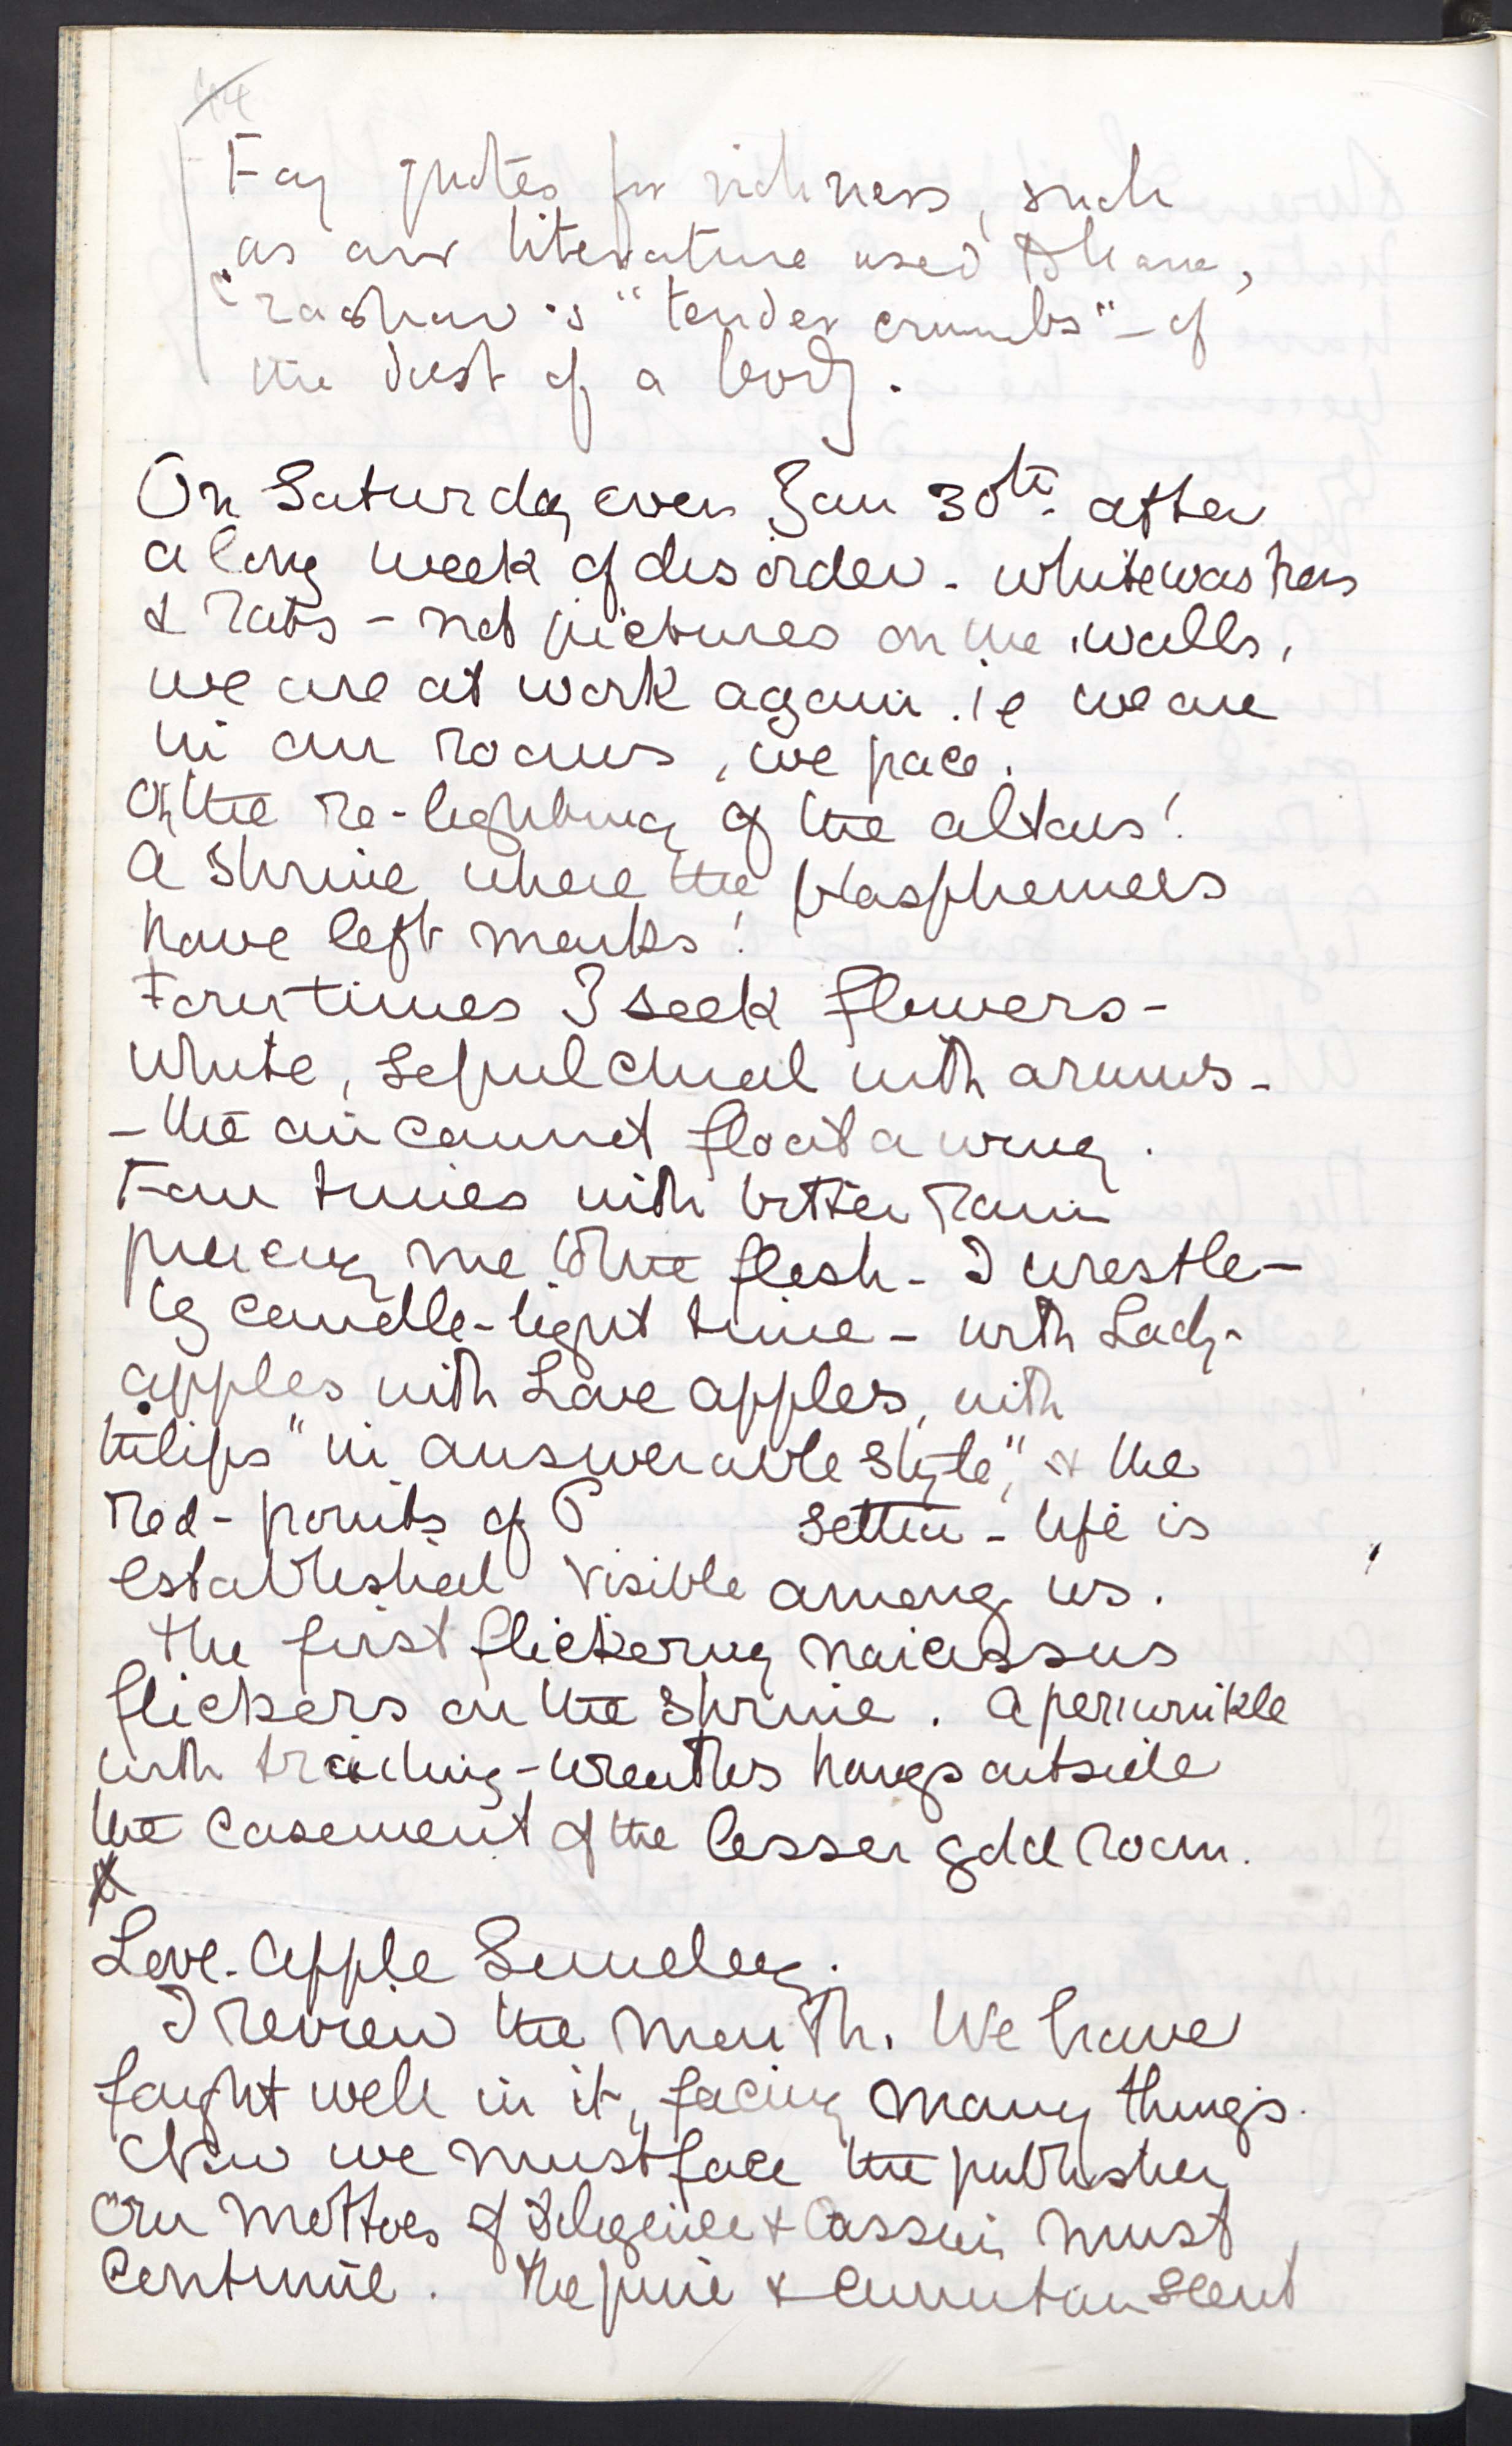 44
Fay quotes for richness, such
as our literature used to have,
Crashaw's "tender crumbs" – of
the dust of a body.
On Saturday even Jan 30th. after
a long week of disorder – whitewashers
& rats – not pictures on the walls,
we are at work again. ie we are
in our rooms, we pace.
Oh the re-lighting of the altars!
A shrine where the blasphemers
have left marks!
Four times I seek flowers –
white, sepulchral with arums –
– the air cannot float a wing.
Four times with bitter rain
piercing me to the flesh – I wrestle –
by candle-light time – with Lady-
apples with Love apples, with
tulips "in answerable style", & the
red-points of P settia – life is
established visible among us.
The first flickering narcissus
flickers on the shrine. A periwinkle
with trailing-wreaths hangs outside
the casement of the lesser gold room.
Love-Apple Sunday.
I review the month. We have
fought well in it, facing many things.
Now we must face the publisher
Our mottoes of Diligence & must
continue. The pine & scent